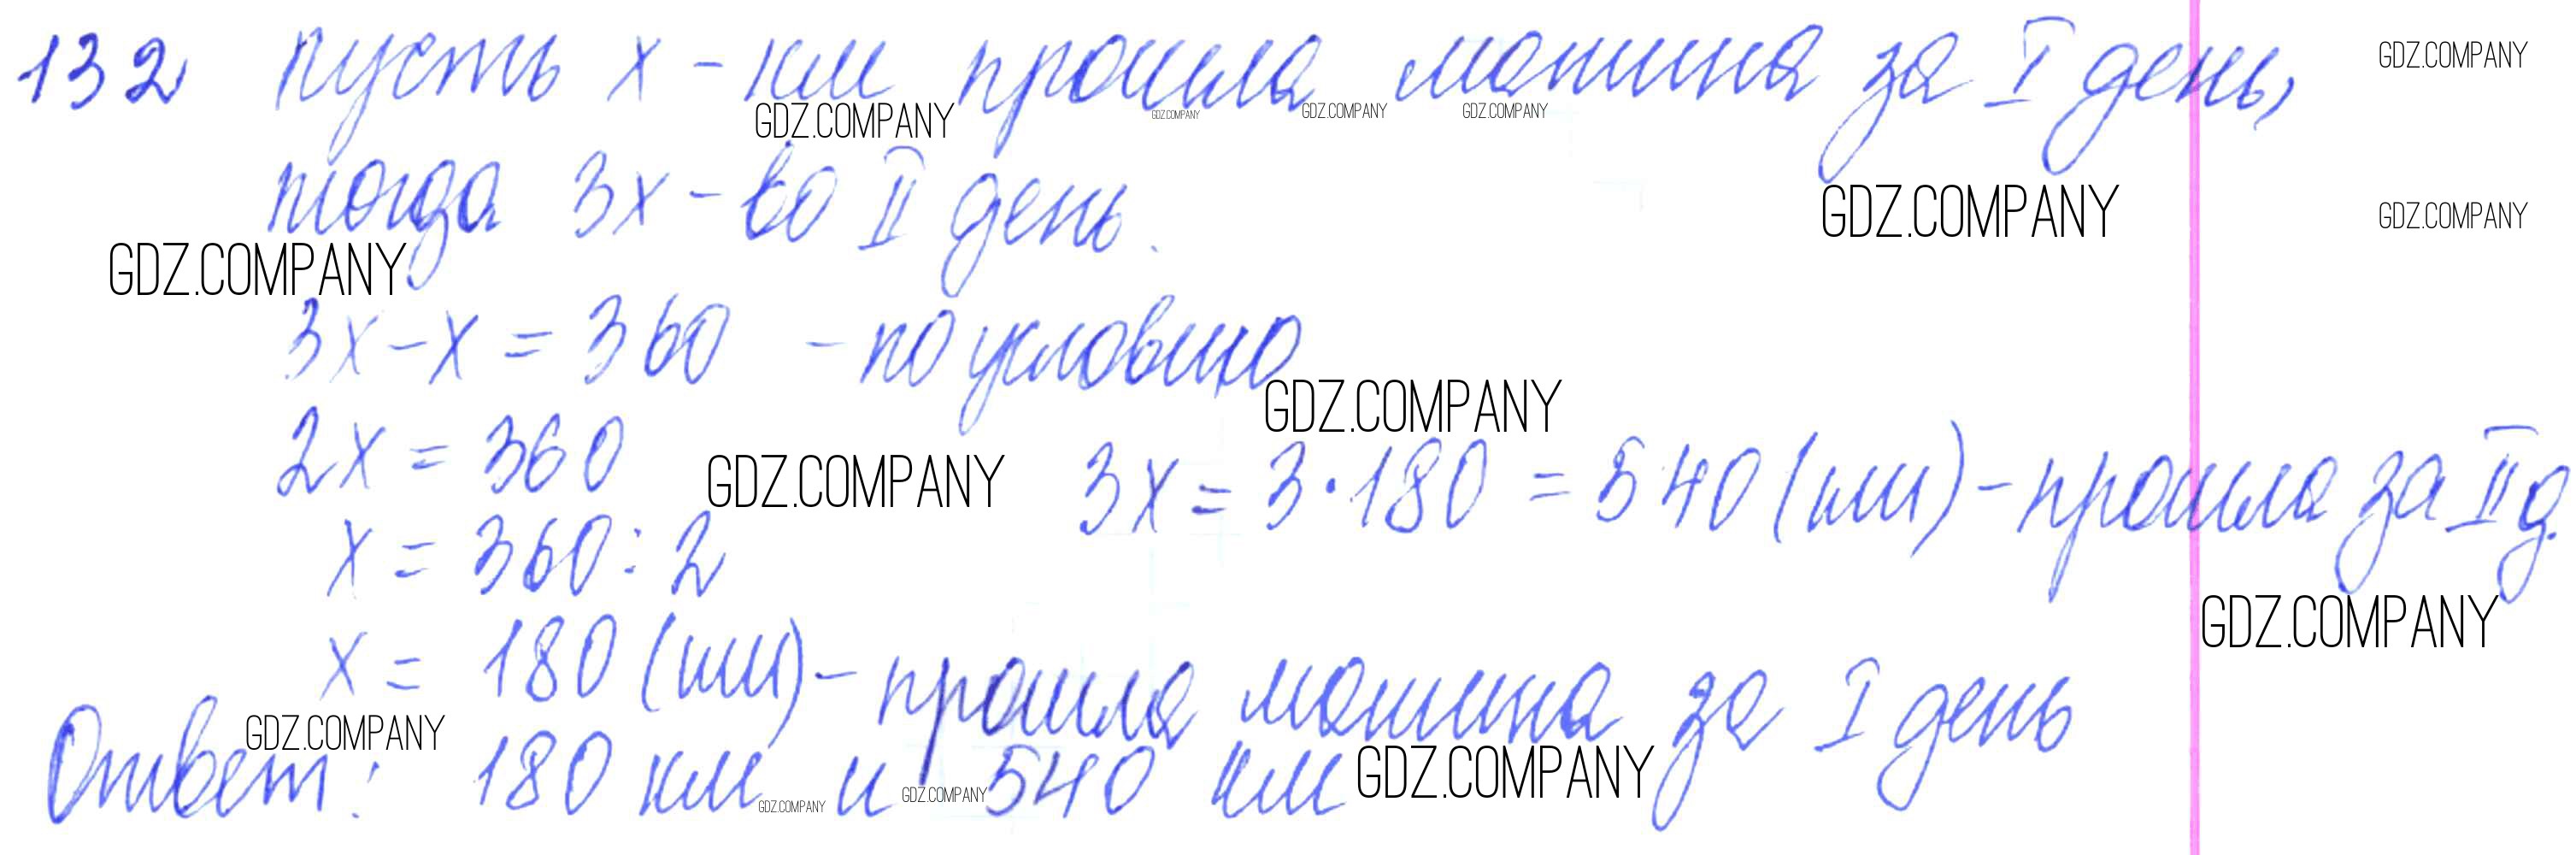 132 Пусть x - км прошла машина за I день,
GDZ.COMPANY
GDZ.COMPANY GDZ.COMPANY GDZ.COMPANY GDZ.COMPANY
тогда 3x - во II день.
GDZ.COMPANY GDZ.COMPANY
GDZ.COMPANY
3x - x = 360 - по условию
GDZ.COMPANY
2x = 360
GDZ.COMPANY
3x = 3 · 180 = 540 (км) - прошла за II д.
x = 360 : 2
GDZ.COMPANY
x = 180 (км) - прошла машина за I день
GDZ.COMPANY
Ответ: 180 км и 540 км
GDZ.COMPANY GDZ.COMPANY GDZ.COMPANY